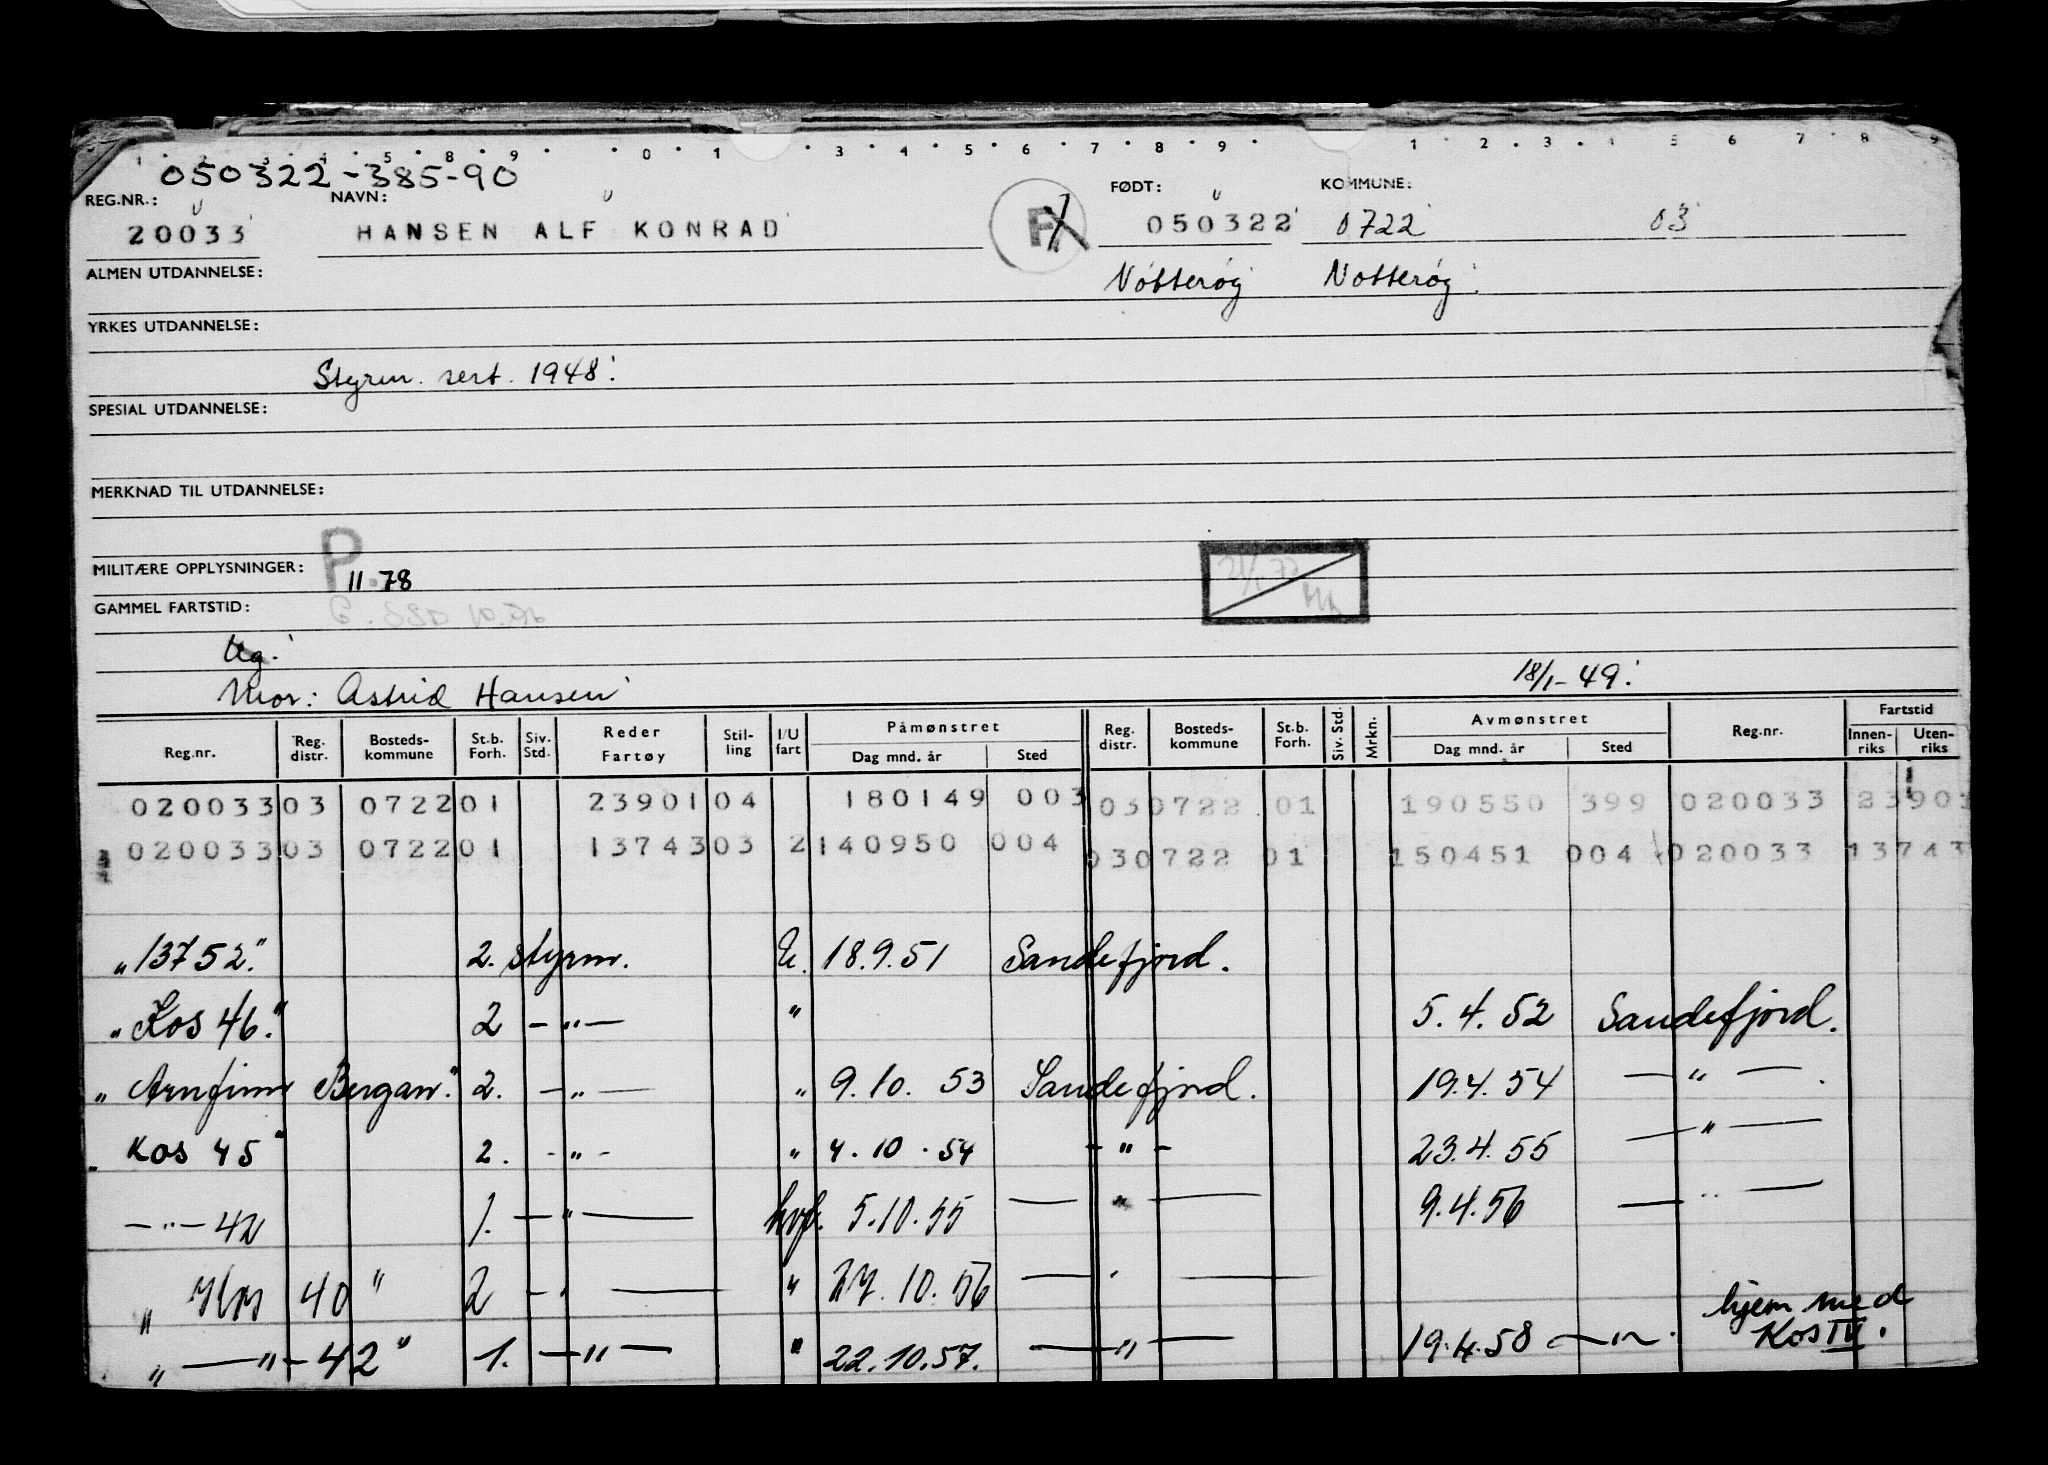 050322-385-90
REG.NR.: NAVN: FØDT: KOMMUNE:
20033 HANSEN ALF KONRAD 050322 0722 03
ALMEN UTDANNELSE: Nötterøy Notterøy
YRKES UTDANNELSE:
Styrm. sert. 1948.
SPESIAL UTDANNELSE:
MERKNAD TIL UTDANNELSE:
MILITÆRE OPPLYSNINGER: P. 11.78
GAMMEL FARTSTID:
Ug.
Mor: Astrid Hansen 18/1-49.
Reg.nr. Reg. distr. Bosteds-kommune St.b. Forh. Siv. Std. Reder Fartøy Stil-ling I/U fart Påmønstret Dag mnd. år Sted Reg. distr. Bosteds-kommune St.b. Forh. Siv. Std. Mrkn. Avmønstret Dag mnd. år Sted Reg.nr. Fartstid Innen-riks Uten-riks
020033 03 0722 01 23901 04 180149 003 03 0722 01 190550 399 020033 23901
020033 03 0722 01 13743 03 2 140950 004 03 0722 01 150451 004 020033 13743
"13752." 2. styrm. U. 18.9.51 Sandefjord.
"Kos 46." 2 -"- " 5.4.52 Sandefjord.
"Arnfinn Bergan". 2. -"- " 9.10.53 Sandefjord. 19.4.54 -"-.
"Kos 45" 2. -"- " 4.10.54 -"- 23.4.55 -"-
-"- 42 1. -"- hvf. 5.10.55 -"- 9.4.56 -"-
" 40" 2 -"- " 27.10.56 -"-
"-"-42" 1. -"- " 22.10.57. -"- 19.4.58 -"-. hjem med
Kos IV.